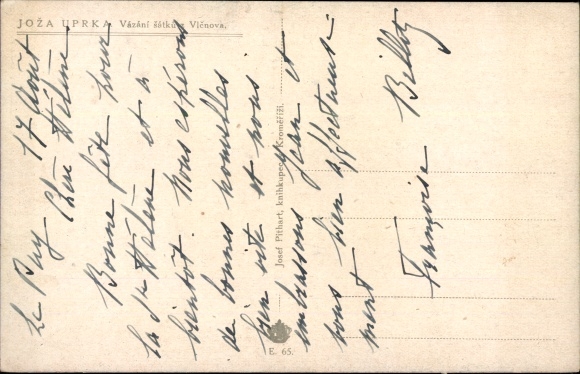 JOŽA UPRKA Vázání šátků z Vlčnova.
Josef Pithart, knihkupec, Kroměříž.
E. 65.
Le Puy 17 Août
Chère Hélène
Bonne fête pour
la Ste Hélène et à
bientôt. Nous espérons
de bonnes nouvelles
bien vite et nous
embrassons Jean et
vous bien affectueuse
ment
Françoise Billet